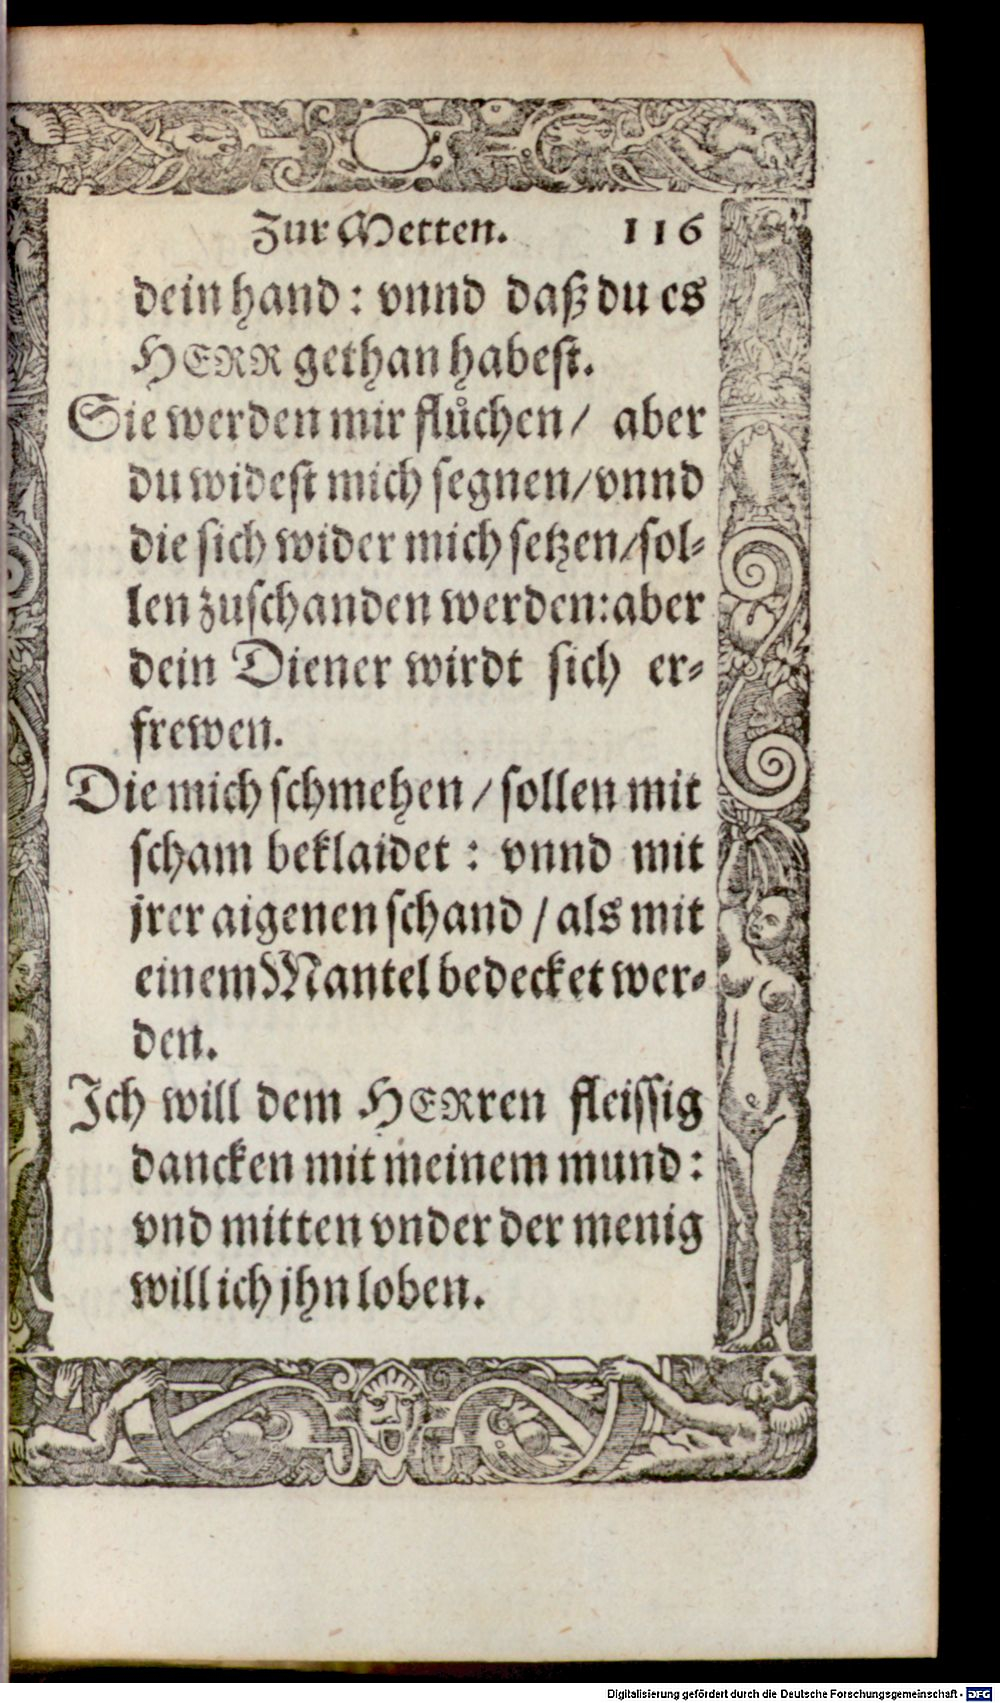 Zur Metten. 116
dein hand: vnnd daß du es
HERR gethan habest.
Sie werden mir flůchen/ aber
du widest mich segnen/vnnd
die sich wider mich setzen/sol-
len zuschanden werden:aber
dein Diener wirdt sich er-
frewen.
Die mich schmehen / sollen mit
scham beklaidet : vnnd mit
jrer aigenen schand / als mit
einem Mantel bedecket wer-
den.
Ich will dem HERren fleissig
dancken mit meinem mund:
vnd mitten vnder der menig
will ich jhn loben.
Digitalisierung gefördert durch die Deutsche Forschungsgemeinschaft - DFG